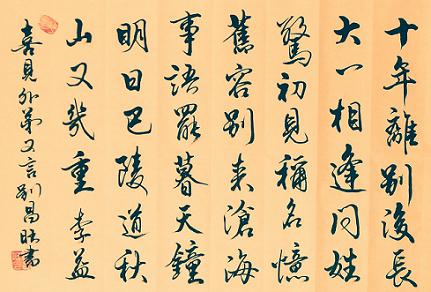 十年離別後長
大一相逢問姓
驚初見稱名憶
舊容別来滄海
事語罷暮天鐘
明日巴陵道秋
山又幾重李益
喜見外弟又言別昌書